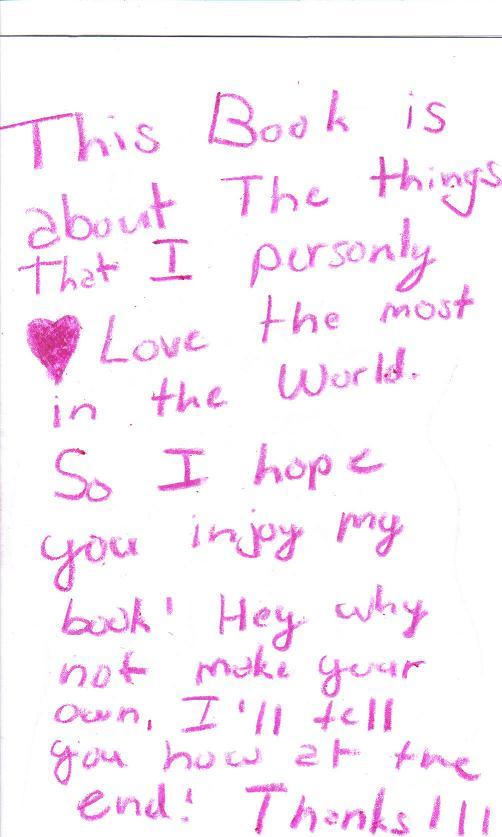 This Book is
about The things
that I personly
Love the most
in the World.
So I hope
you injoy my
book! Hey why
not make your
own, I'll tell
you how at the
end! Thanks!!!